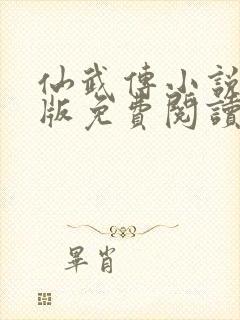 仙武傳小說
版免費閱讀
畢肖